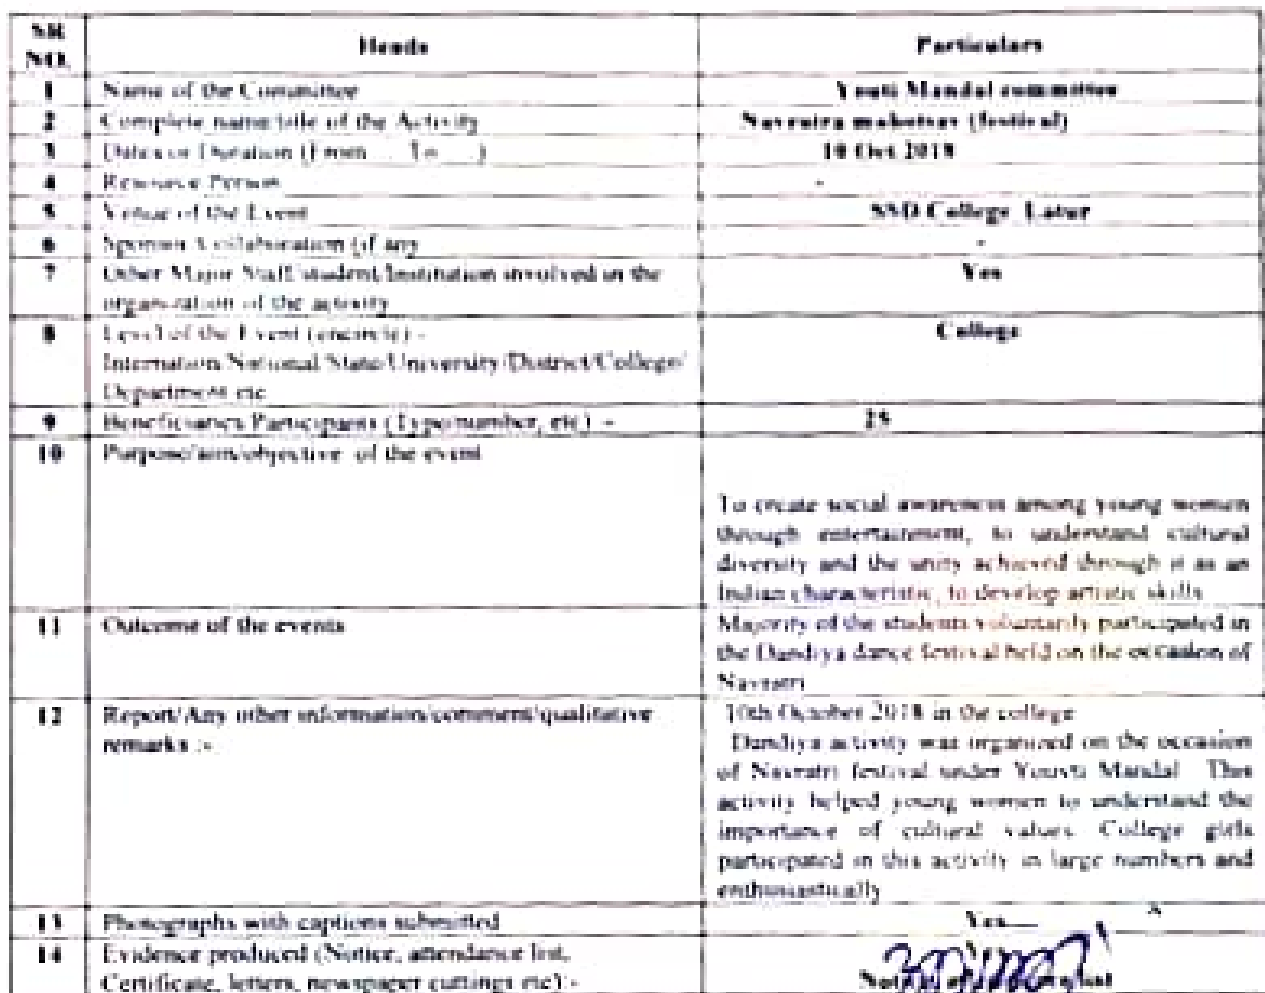 SR Heads Particulars
NO.
1 Name of the Committee Youti Mandal committee
2 Complete name/title of the Activity Navratra mahotsav (festival)
3 Dates or Duration (From To ) 10 Oct 2018
4 Resource Person -
5 Venue of the Event SSD College Latur
6 Sponsor/Collaboration (if any -
7 Other Major Staff/student/Institution involved in the Yes
organization of the activity
8 Level of the Event (encircle) - College
Internation/National/State/University/District/College/
Department etc
9 Beneficiaries Participants (Type/number, etc) - 25
10 Purpose/aim/objective of the event
To create social awareness among young women
through entertainment, to understand cultural
diversity and the unity achieved through it as an
Indian characteristic, to develop artistic skills
11 Outcome of the events Majority of the students voluntarily participated in
the Dandiya dance festival held on the occasion of
Navratri
12 Report/Any other information/comment/qualitative 10th October 2018 in the college
remarks :- Dandiya activity was organized on the occasion
of Navratri festival under Youvti Mandal This
activity helped young women to understand the
importance of cultural values College girls
participated in this activity in large numbers and
enthusiastically
13 Photographs with captions submitted Yes
14 Evidence produced (Notice, attendance list,
Certificate, letters, newspaper cuttings etc) -